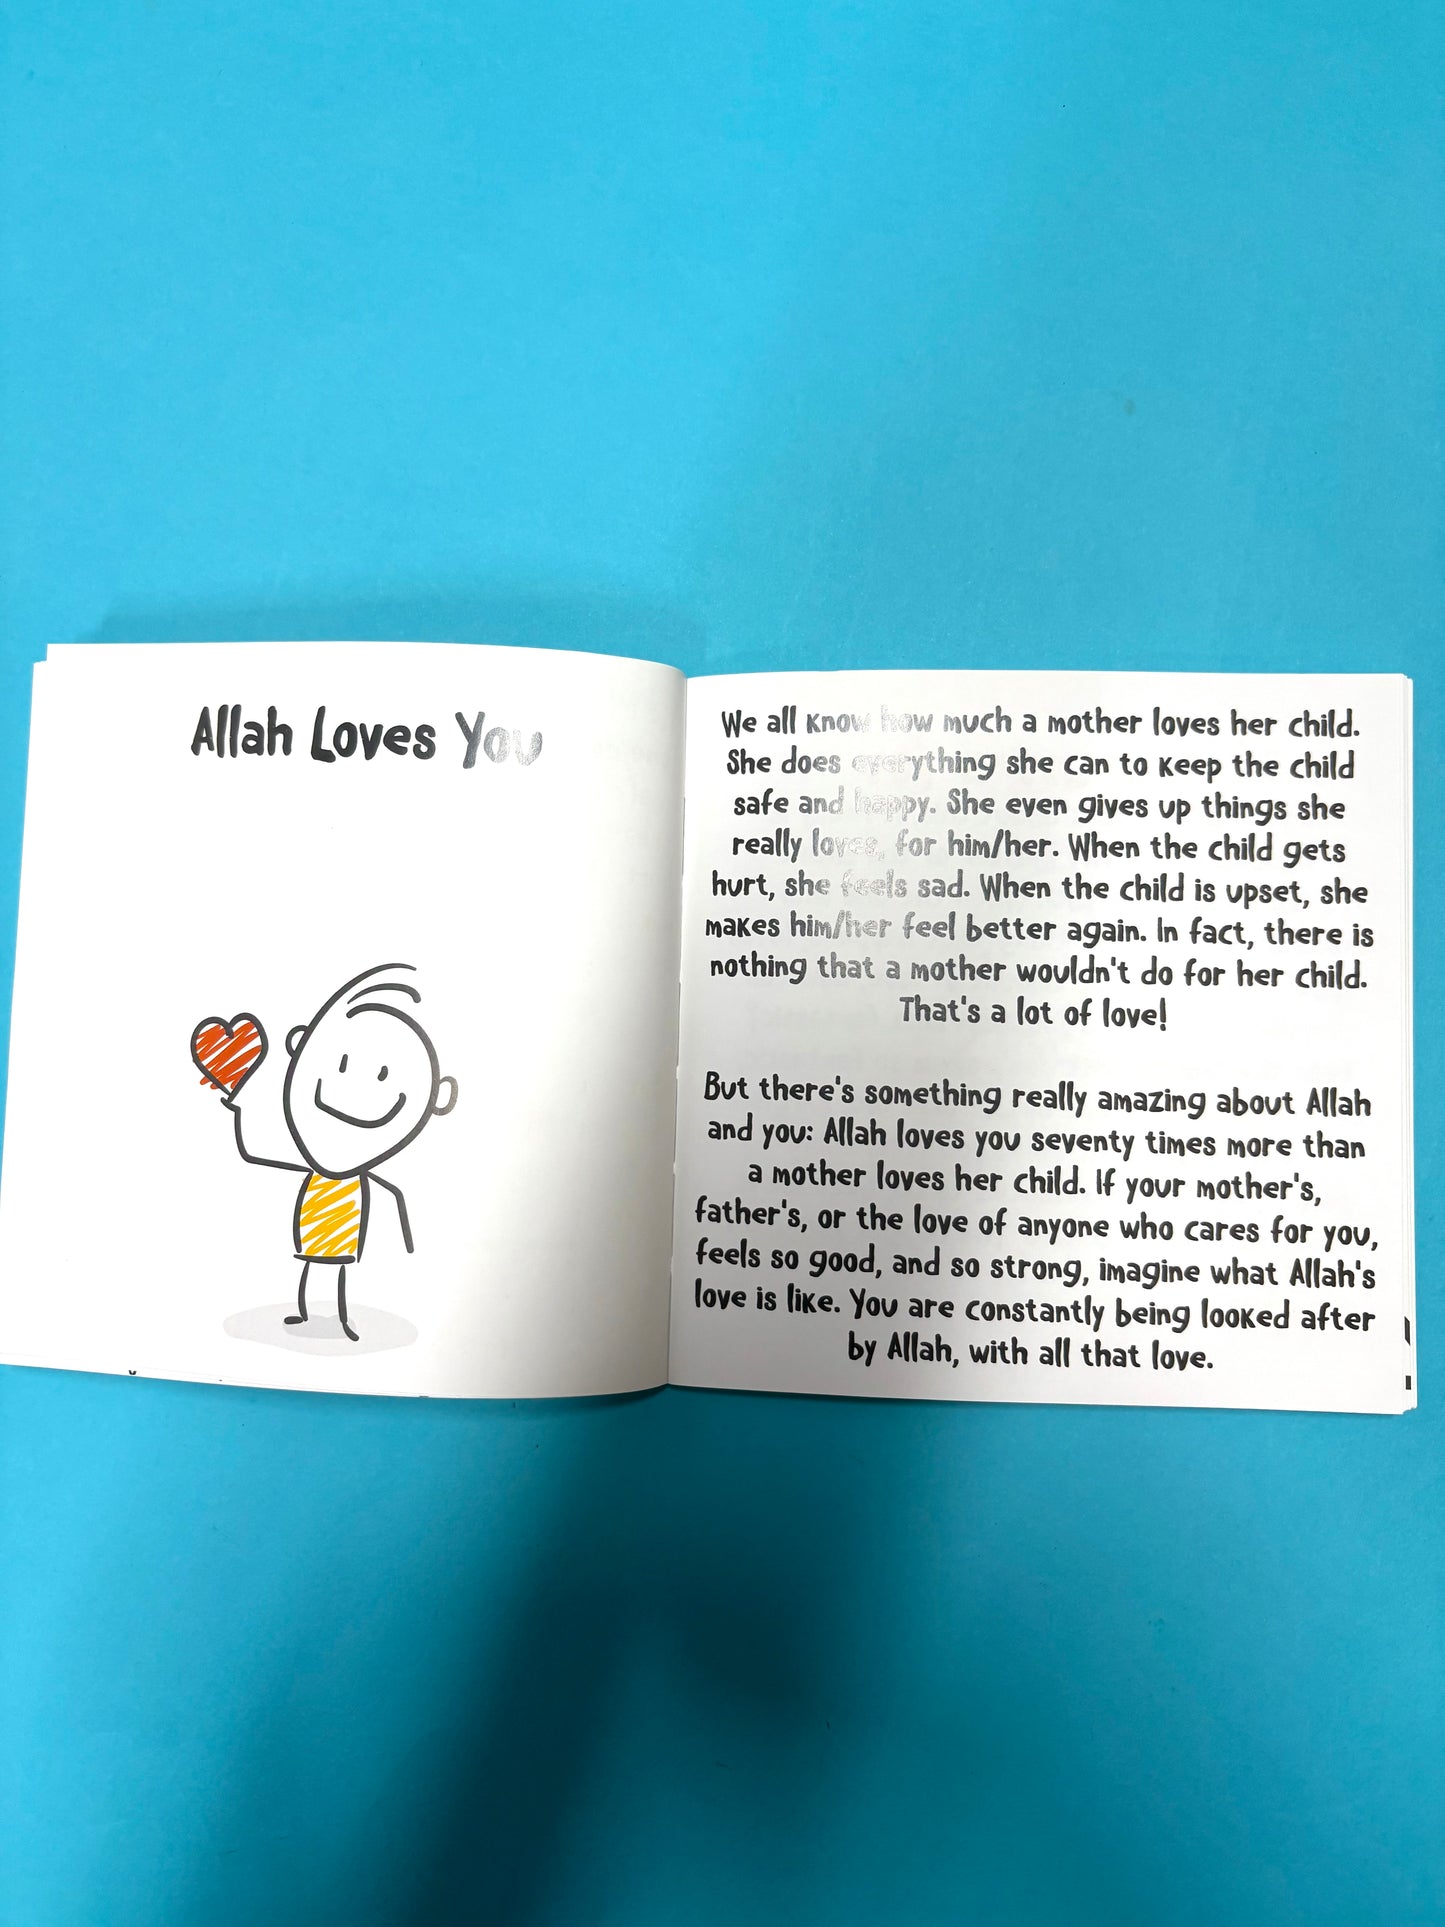 Allah Loves You
We all know how much a mother loves her child.
She does everything she can to keep the child
safe and happy. She even gives up things she
really loves, for him/her. When the child gets
hurt, she feels sad. When the child is upset, she
makes him/her feel better again. In fact, there is
nothing that a mother wouldn't do for her child.
That's a lot of love!
But there's something really amazing about Allah
and you: Allah loves you seventy times more than
a mother loves her child. If your mother's,
father's, or the love of anyone who cares for you,
feels so good, and so strong, imagine what Allah's
love is like. You are constantly being looked after
by Allah, with all that love.